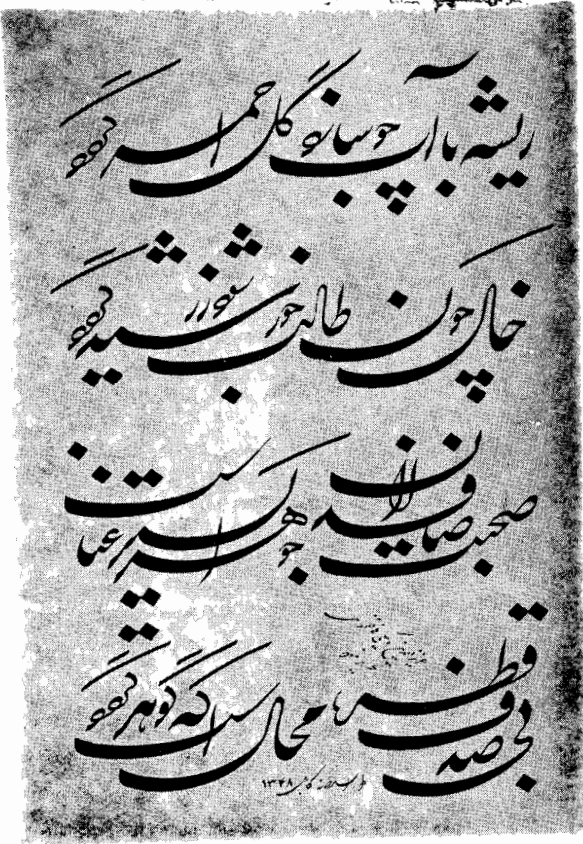 ریشه با آب چو سازد گل احمر گردد
خاک چون طالب خورشید شود زر گردد
صحبت صافدلان جوهر اکسیر غناست
بی صدف قطره محال است که گوهر گردد
۱۳۲۸